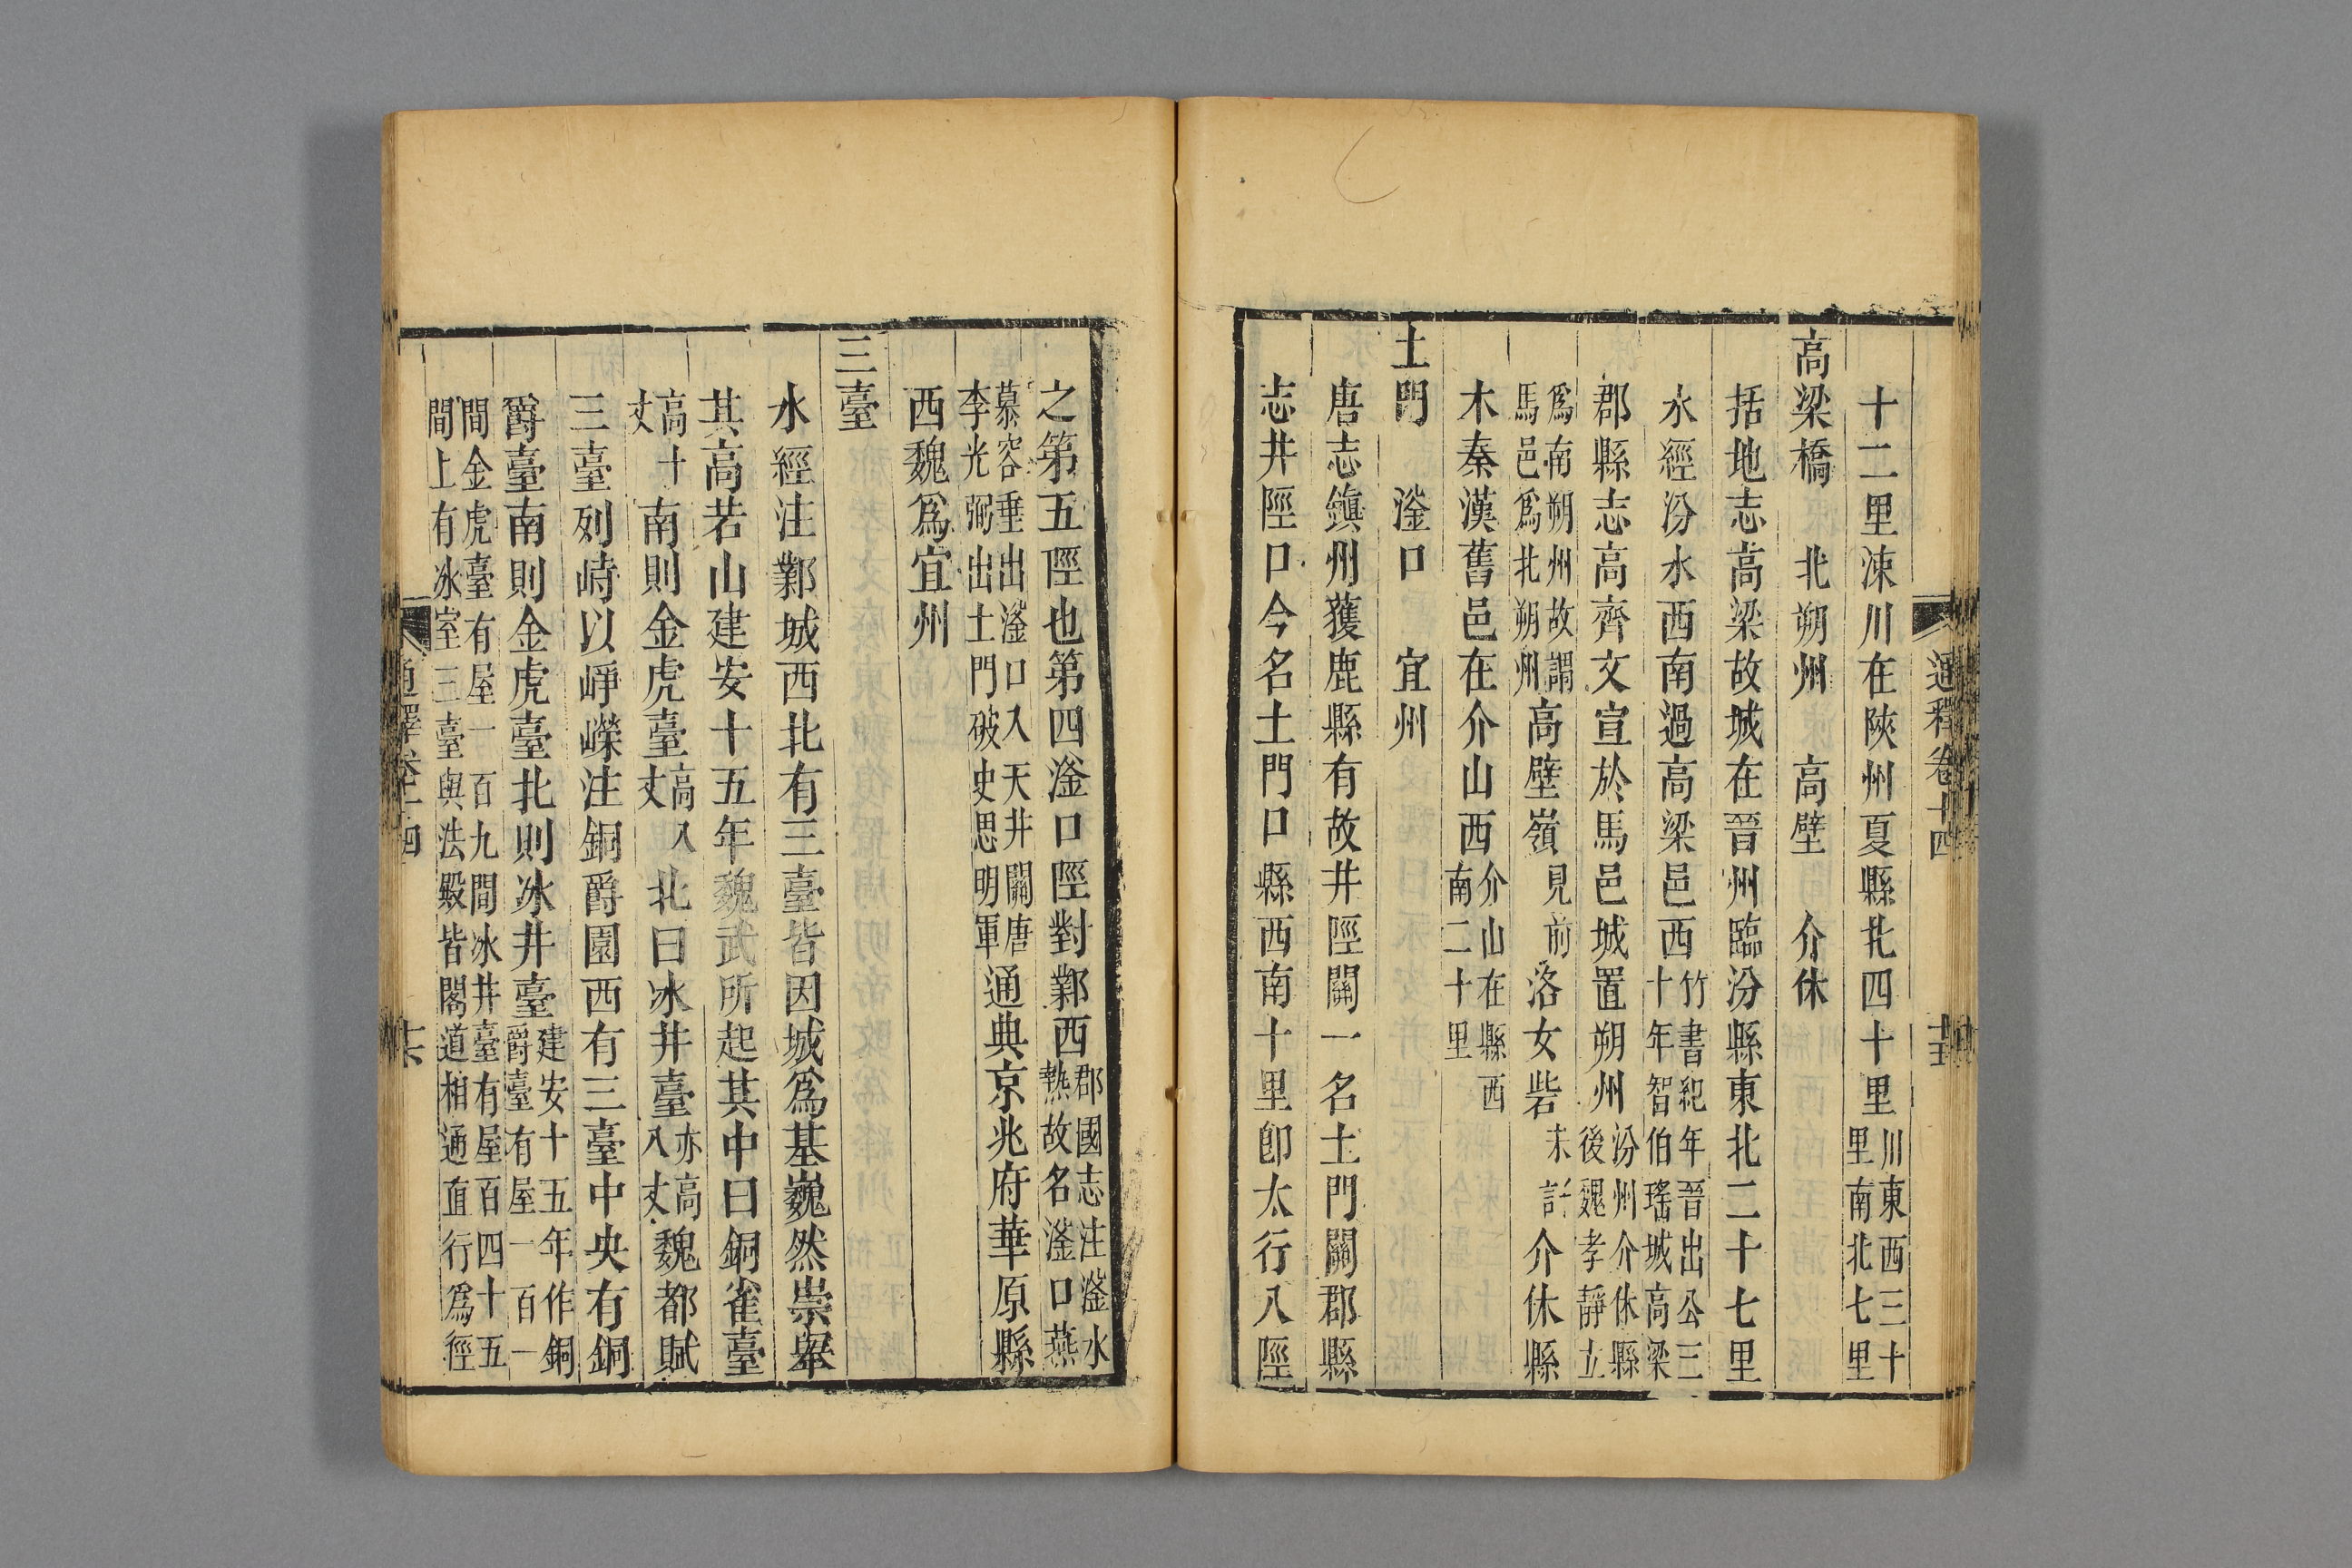 通釋卷十四
十五
十二里涑川在陝州夏縣北四十里川東西三十里南北七里
高梁橋　北朔州　高壁　介休
括地志高梁故城在晉州臨汾縣東北二十七里
水經汾水西南過高梁邑西竹書紀年晉出公三十年智伯瑤城高梁
郡縣志高齊文宣於馬邑城置朔州汾州介休縣後魏孝靜立
爲南朔州故謂馬邑爲北朔州高壁嶺見前洛女砦未詳介休縣
木秦漢舊邑在介山西介山在縣西南二十里
土門　滏口　宜州
唐志鎮州獲鹿縣有故井陘關一名土門關郡縣
志井陘口今名土門口縣西南十里卽太行八陘
之第五陘也第四滏口陘對鄴西郡國志注滏水熱故名滏口燕
慕容垂出滏口入天井關唐李光弼出土門破史思明軍通典京兆府華原縣
西魏爲宜州
三臺
水經注鄴城西北有三臺皆因城爲基巍然崇舉
其高若山建安十五年魏武所起其中曰銅雀臺
高十丈南則金虎臺高八丈北曰冰井臺亦高八丈魏都賦
三臺列峙以崢嶸注銅爵園西有三臺中央有銅
爵臺南則金虎臺北則冰井臺建安十五年作銅爵臺有屋一百一
間金虎臺有屋一百九間冰井臺有屋百四十五間上有冰室三臺與法殿皆閣道相通直行爲徑
通釋卷十四
十六